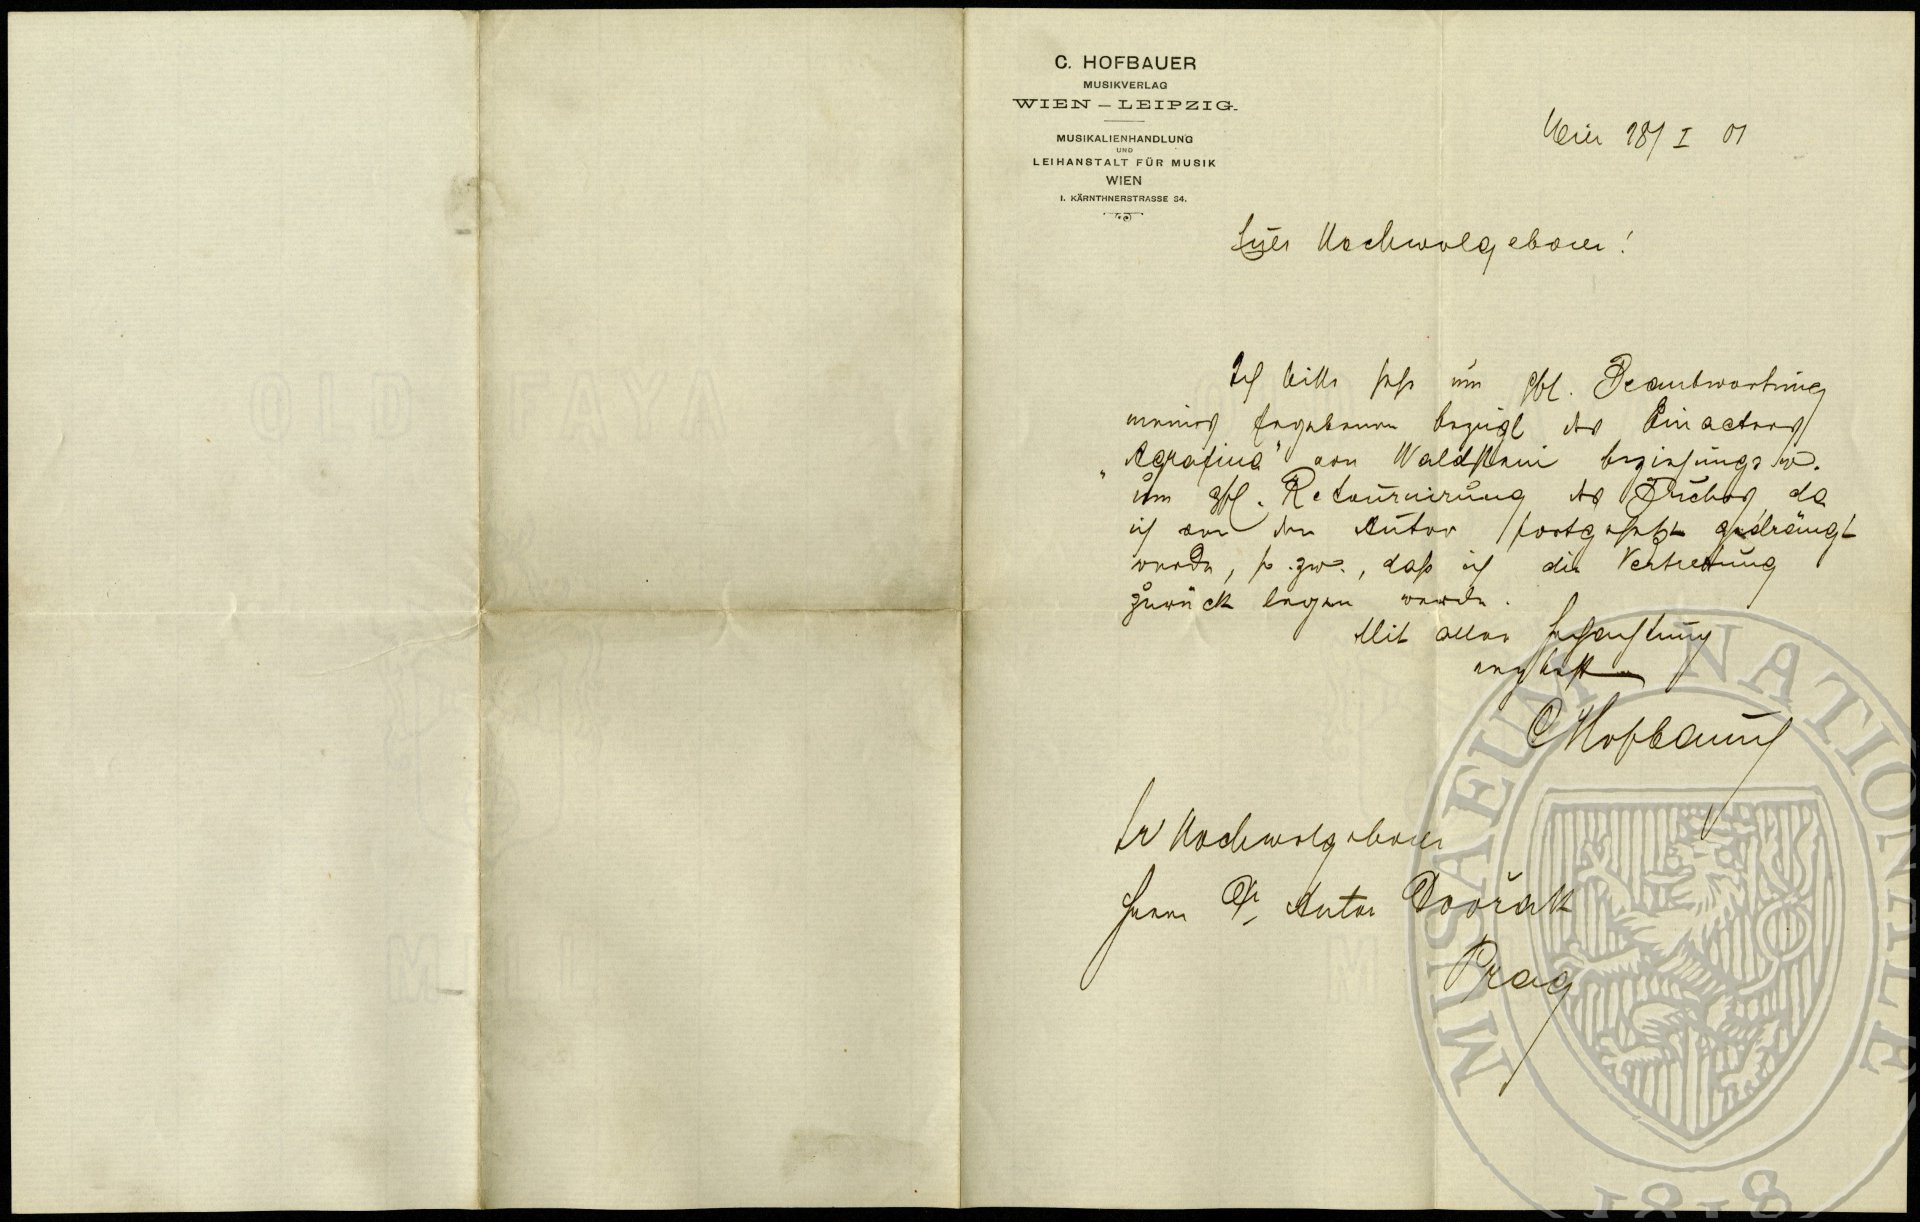 C. HOFBAUER
MUSIKVERLAG
WIEN – LEIPZIG.
MUSIKALIENHANDLUNG
UND
LEIHANSTALT FÜR MUSIK
WIEN
I. KÄRNTHNERSTRASSE 34.
Wien 28/I 01
Euer Hochwolgeboren!
Ich bitte sehr um gfl. Beantwortung
meines Ergebenen bezügl des Einacters
„Agrafina" von Waldstein beziehungsw.
um gfl. Retournirung des Buches da
ich von dem Autor fortgesetzt gedrängt
werde, so zw., daß ich die Vertretung
zurück legen werde.
Mit aller Hochachtung
ergebenst
C Hofbauer
Sr Hochwolgeboren
Herrn Dr Anton Dvořak
Prag
OLD
AYA
MILL
M
MUSAEUM NATIONALE
1818